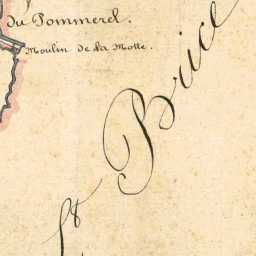 du Pommerel.
Moulin de la Motte.
St Brice